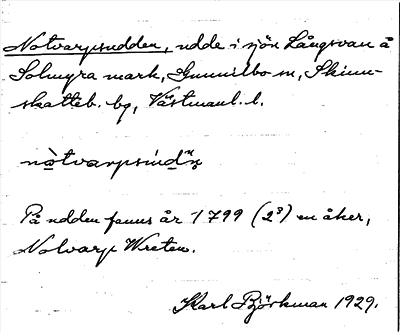 Notvarpsudden, udde i sjön Långsvan å
Solmyra mark, Gunnilbo sn, Skinn-
skatteb. bg, Västmanl. l.
På udden fanns år 1799 (2?) en åker,
Notvarp Wreten.
Karl Björkman 1929.